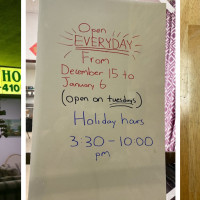 HO
-410
Open
EVERYDAY
From
December 15 to
January 6
(open on tuesdays)
Holiday hours
3:30-10:00
pm